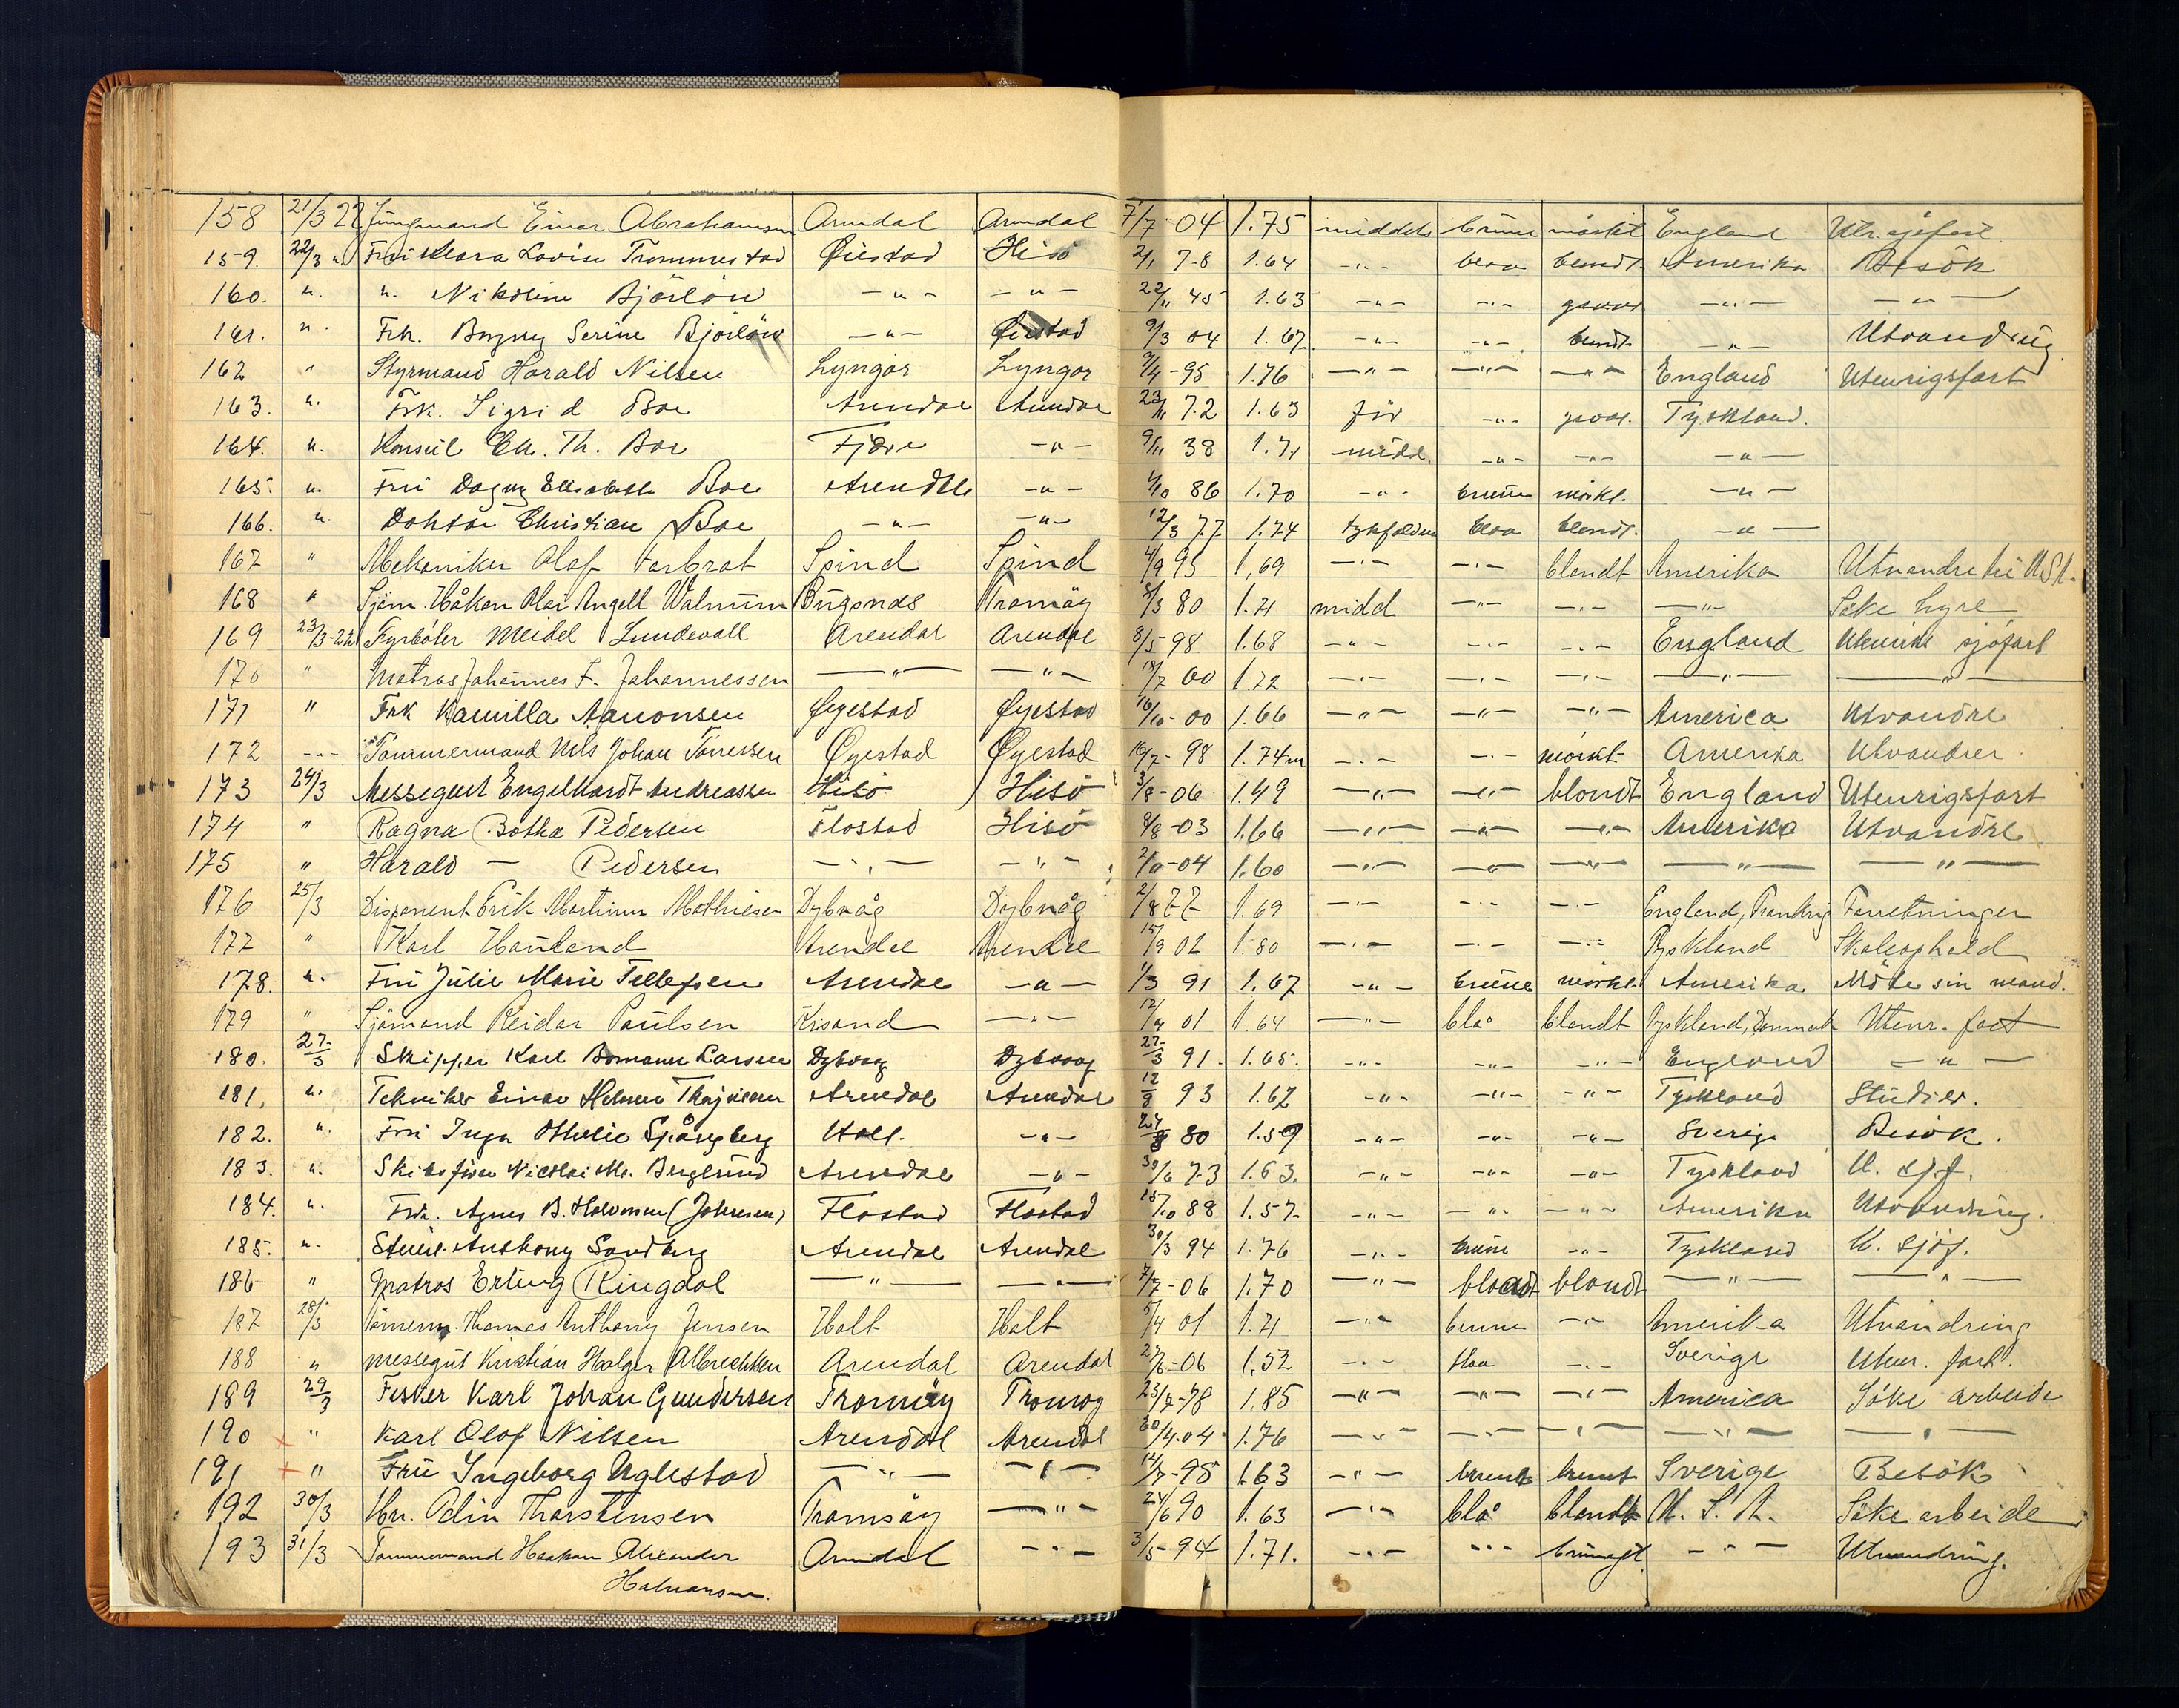 158 21/3 22 Jungmand Einar Abrahamsen Arendal Arendal 7/7-04 1.75 middels brune mørkt England Utr. sjøfart
159. 22/3 u. Fru Klara Lovise Trommestad Øiestad Hisö 2/1 78 1.64 -"- blaa blondt. Amerika Besök
160. u. u. Nikoline Björlöw -"- -"- 22/11 45 1.63 -"- -"- graat -"- -"-
161. u. Frk. Bogny Serine Björlöw -"- Øiestad 9/3 04 1.67 -"- -"- blondt. -"- Utvandring
162 " Styrmand Harald Nilsen Lyngør Lyngør 9/4-95 1.76 -"- -"- -"- England Utenrigsfart
163. u. Frk. Sigrid Boe Arendal Arendal 23/11 72 1.63 för -"- graat. Tyskland.
164. u. Konsul Ch. Th. Boe Fjære -"- 9/11 38 1.71 midd. -"- -"- -"-
165. u. Fru Dagny Elisabeth Boe Arendal -"- 1/10 86 1.70 -"- brune mörkt. -"-
166. u. Doktor Christian Boe -"- -"- 12/3 77 1.74 tykfalden blaa blondt. -"-
167 " Mekaniker Olaf Tarbrat Spind Spind 4/9 95 1,69 -"- -"- blondt Amerika Utvandre til U.S.A.
168 " Sjöm. Håkon Olai Angell Walnum Bugsnes Tromöy 2/3 80 1.71 midd -"- -"- -"- Söke hyre
169 23/3-22 Fyrböter Meidel Lundevall Arendal Arendal 8/5 98 1.68 -"- -"- -"- England Utenriks sjöfart
170 " Matros Johannes F. Johannessen -"- -"- 18/7 00 1.72 -"- -"- -"- -"- -"-
171 " Frk Kamilla Aanonsen Øyestad Øyestad 16/10-00 1.66 -"- -"- -"- America Utvandre
172 -"- Tømmermand Nils Johan Tönnessen Øyestad Øyestad 16/7-98 1.74m -"- -"- mörkt Amerika Utvandrer
173 24/3 Messegut Engelhardt Andreassen Hisö Hisö 3/8-06 1.49 -"- -"- blondt England Utenrigsfart
174 " Ragna Botha Pedersen Flostad Hisö 8/8-03 1.66 -"- -"- -"- Amerika Utvandre
175 " Harald - Pedersen -"- -"- 2/11-04 1.60 -"- -"- -"- -"- -"-
176 25/3 Disponent Erik Martinus Mathiesen Dybvåg Dybvåg 2/8 77 1.69 -"- -"- -"- England, Frankrig Forretninger
177 " Karl Hauland Arendal Arendal 15/9 02 1.80 -"- -"- -"- Tyskland Skoleophold
178. u. Fru Julie Marie Tellefsen Arendal -"- 1/3 91 1.67 -"- brune mörkt. Amerika Möte sin mand.
179 " Sjömand Reidar Paulsen Krsand -"- 12/9 01 1.64 -"- blå blondt Tyskland, Danmark Utenr. fart
180. 27/3 Skipper Karl Bomann Larsen Dybvaag Dybvaag 27/3 91. 1.65. -"- -"- -"- England -"-
181. u. Tekniker Einar Helmer Arendal Arendal 12/9 93 1.67 -"- -"- -"- Tyskland Studier.
182. u. Fru Inga Othelie Spångberg Holt. -"- 24/8 80 1.59 -"- -"- -"- Sverige Besök.
183. u. Skibsfører Nicolai M. Berglund Arendal -"- 30/6 73 1.63. -"- -"- -"- Tyskland U. sjf.
184. u. Frk. Agnes B. Halvorsen (Johnsen) Flostad Flostad 15/10 88 1.57. -"- -"- -"- Amerika Utvandring.
185. u. Anthony Sandberg Arendal Arendal 30/3 94 1.76 -"- brune -"- Tyskland U. sjöf.
186 " Matros Erling Ringdal -"- -"- 7/7-06 1.70 -"- blondt -"- -"-
187 28/3 Tömmerm. Thomas Anthony Jensen Holt Holt 5/4 01 1.71 -"- brune -"- Amerika Utvandring
188 " Messegut Kristian Holger Albrechtsen Arendal Arendal 27/6-06 1,52 -"- blaa -"- Sverige Utenr. fart.
189 29/3 Fisker Karl Johan Gundersen Tromöy Tromöy 23/7-78 1.85 -"- -"- -"- America Söke arbeide
190 " Karl Olof Nilsen Arendal Arendal 30/4.04. 1.76 -"- -"- -"- -"- -"-
191 " Fru Ingeborg Uglestad -"- -"- 14/7-95 1.63 -"- brune brunt Sverige Besök
192 30/3 Hr. Odin Thorstensen Tromsöy -"- 24/6 90 1.63 -"- blå blondt U. S. A. Söke arbeide
193 31/3 Tømmermand Haakon Alexander Arendal -"- 3/5-94 1.71. -"- -"- -"- Utvandring.
Halvorsen.